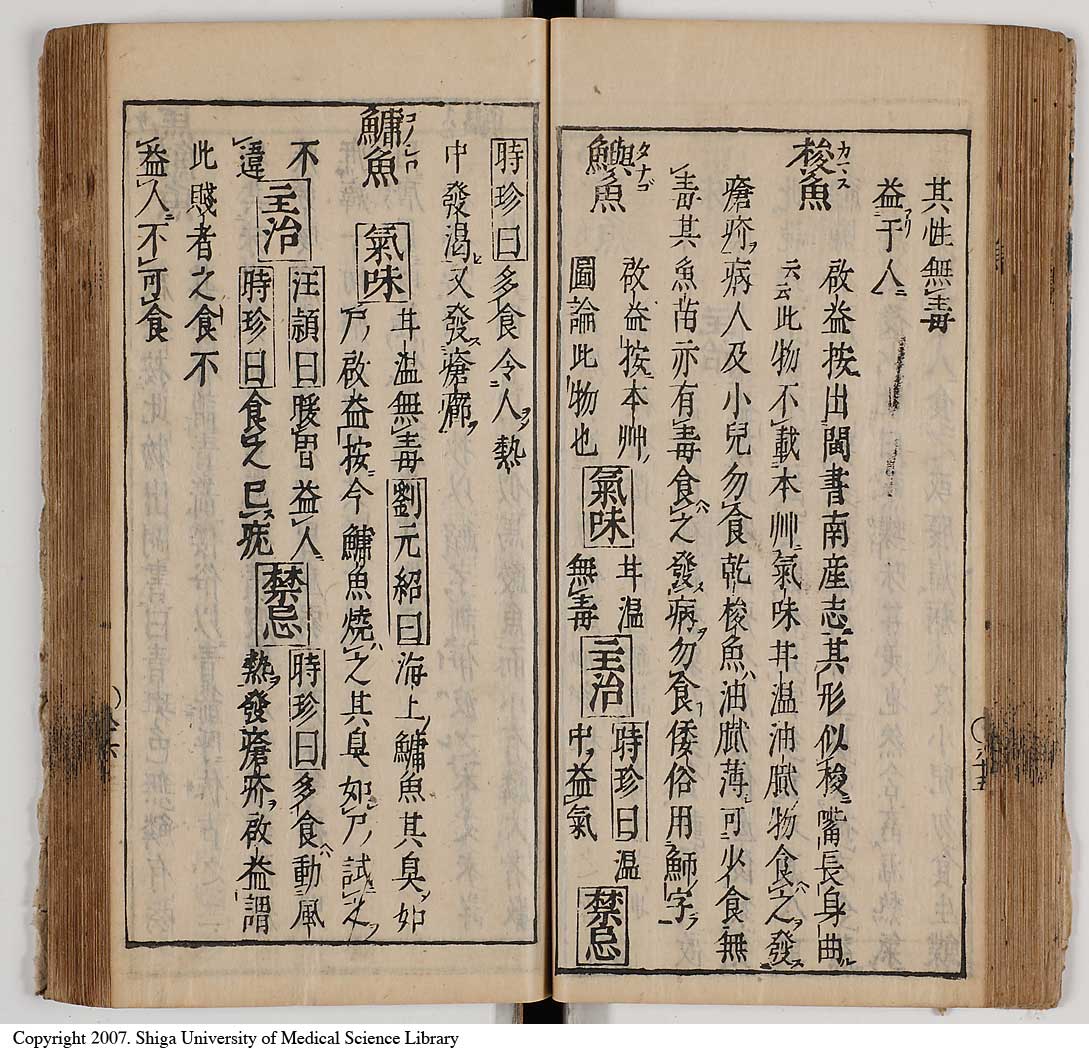 其性無毒
益于人
梭魚
カマス
啟益按出閩書南産志其形似梭嘴長身曲
云云此物不載本艸氣味甘温油膩物食之發
瘡疥病人及小兒勿食乾梭魚油膩薄可少食無
毒其魚苗亦有毒食之發病勿食倭俗用鰤字
鱮魚
タナゴ
啟益按本艸
圖論此物也
氣味
甘温
無毒
主治
時珍曰温
中益氣
禁忌
時珍曰多食令人熱
中發渴又發瘡癤
鱅魚
コノシロ
氣味
甘温無毒劉元紹曰海上鱅魚其臭如
尸啟益按今鱅魚燒之其臭如尸試之
不
違
主治
汪頴曰暖胃益人
時珍曰食之已疣
禁忌
時珍曰多食動風
熱發瘡疥啟益謂
此賤者之食不
益人不可食
Copyright 2007. Shiga University of Medical Science Library